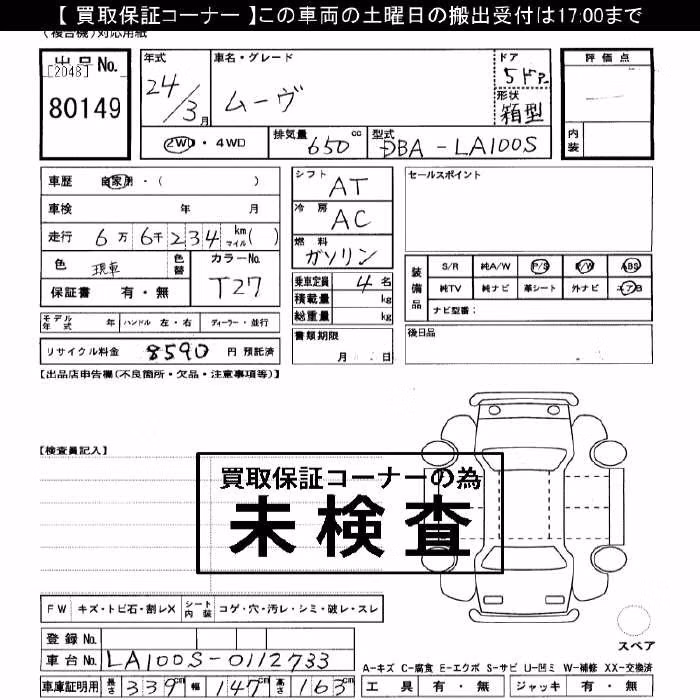 【 買取保証コーナー 】この車両の土曜日の搬出受付は17:00まで
(複合機)対応用紙
出品No. [2048] 80149
年式 24/3月
車名・グレード ムーヴ
ドア 5ドア
形状 箱型
評価点
内装
2WD ・ 4WD 排気量 650 cc 型式 DBA - LA100S
車歴 自家用 ・ ( )
車検 年 月
走行 6万 6千 234 km マイル ( )
色 現車 色替 カラーNo. T27
保証書 有 ・ 無
モデル年式 年 ハンドル 左・右 ディーラー・並行
リサイクル料金 8590 円 預託済
シフト AT
冷房 AC
燃料 ガソリン
乗車定員 4 名
積載量 kg
総重量 kg
書類期限
月 日
セールスポイント
装備品 S/R 純A/W P/S P/W ABS
純TV 純ナビ 革シート 外ナビ エアB
ナビ型番:
後日品
【出品店申告欄(不良箇所・欠品・注意事項等)】
【検査員記入】
買取保証コーナーの為
未検査
FW キズ・トビ石・割レX シート内装 コゲ・穴・汚レ・シミ・破レ・スレ
登録No.
車台No. LA100S-0112733
車庫証明用 長さ 339cm 幅 147cm 高さ 163cm
スペア
A-キズ C-腐食 E-エクボ S-サビ U-凹ミ W-補修 XX-交換済
工具 有 ・ 無 ジャッキ 有 ・ 無